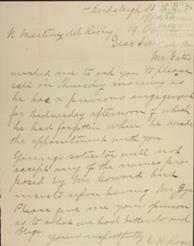 Endsleigh St
N. Martinez del Rio Esq
Dear Sir
Mr Yates
wished me to ask you to please
call on Thursday morning as
he has a previous engagement
for Wednesday afternoon which
he had forgotten when he made
the appointment with you
Youngs solicitor will not
accept any of the names pro
posed by Mr Howard but
insists upon having Mr
Please give me your opinion
as to what we had better do and
oblige
Yours respectfully